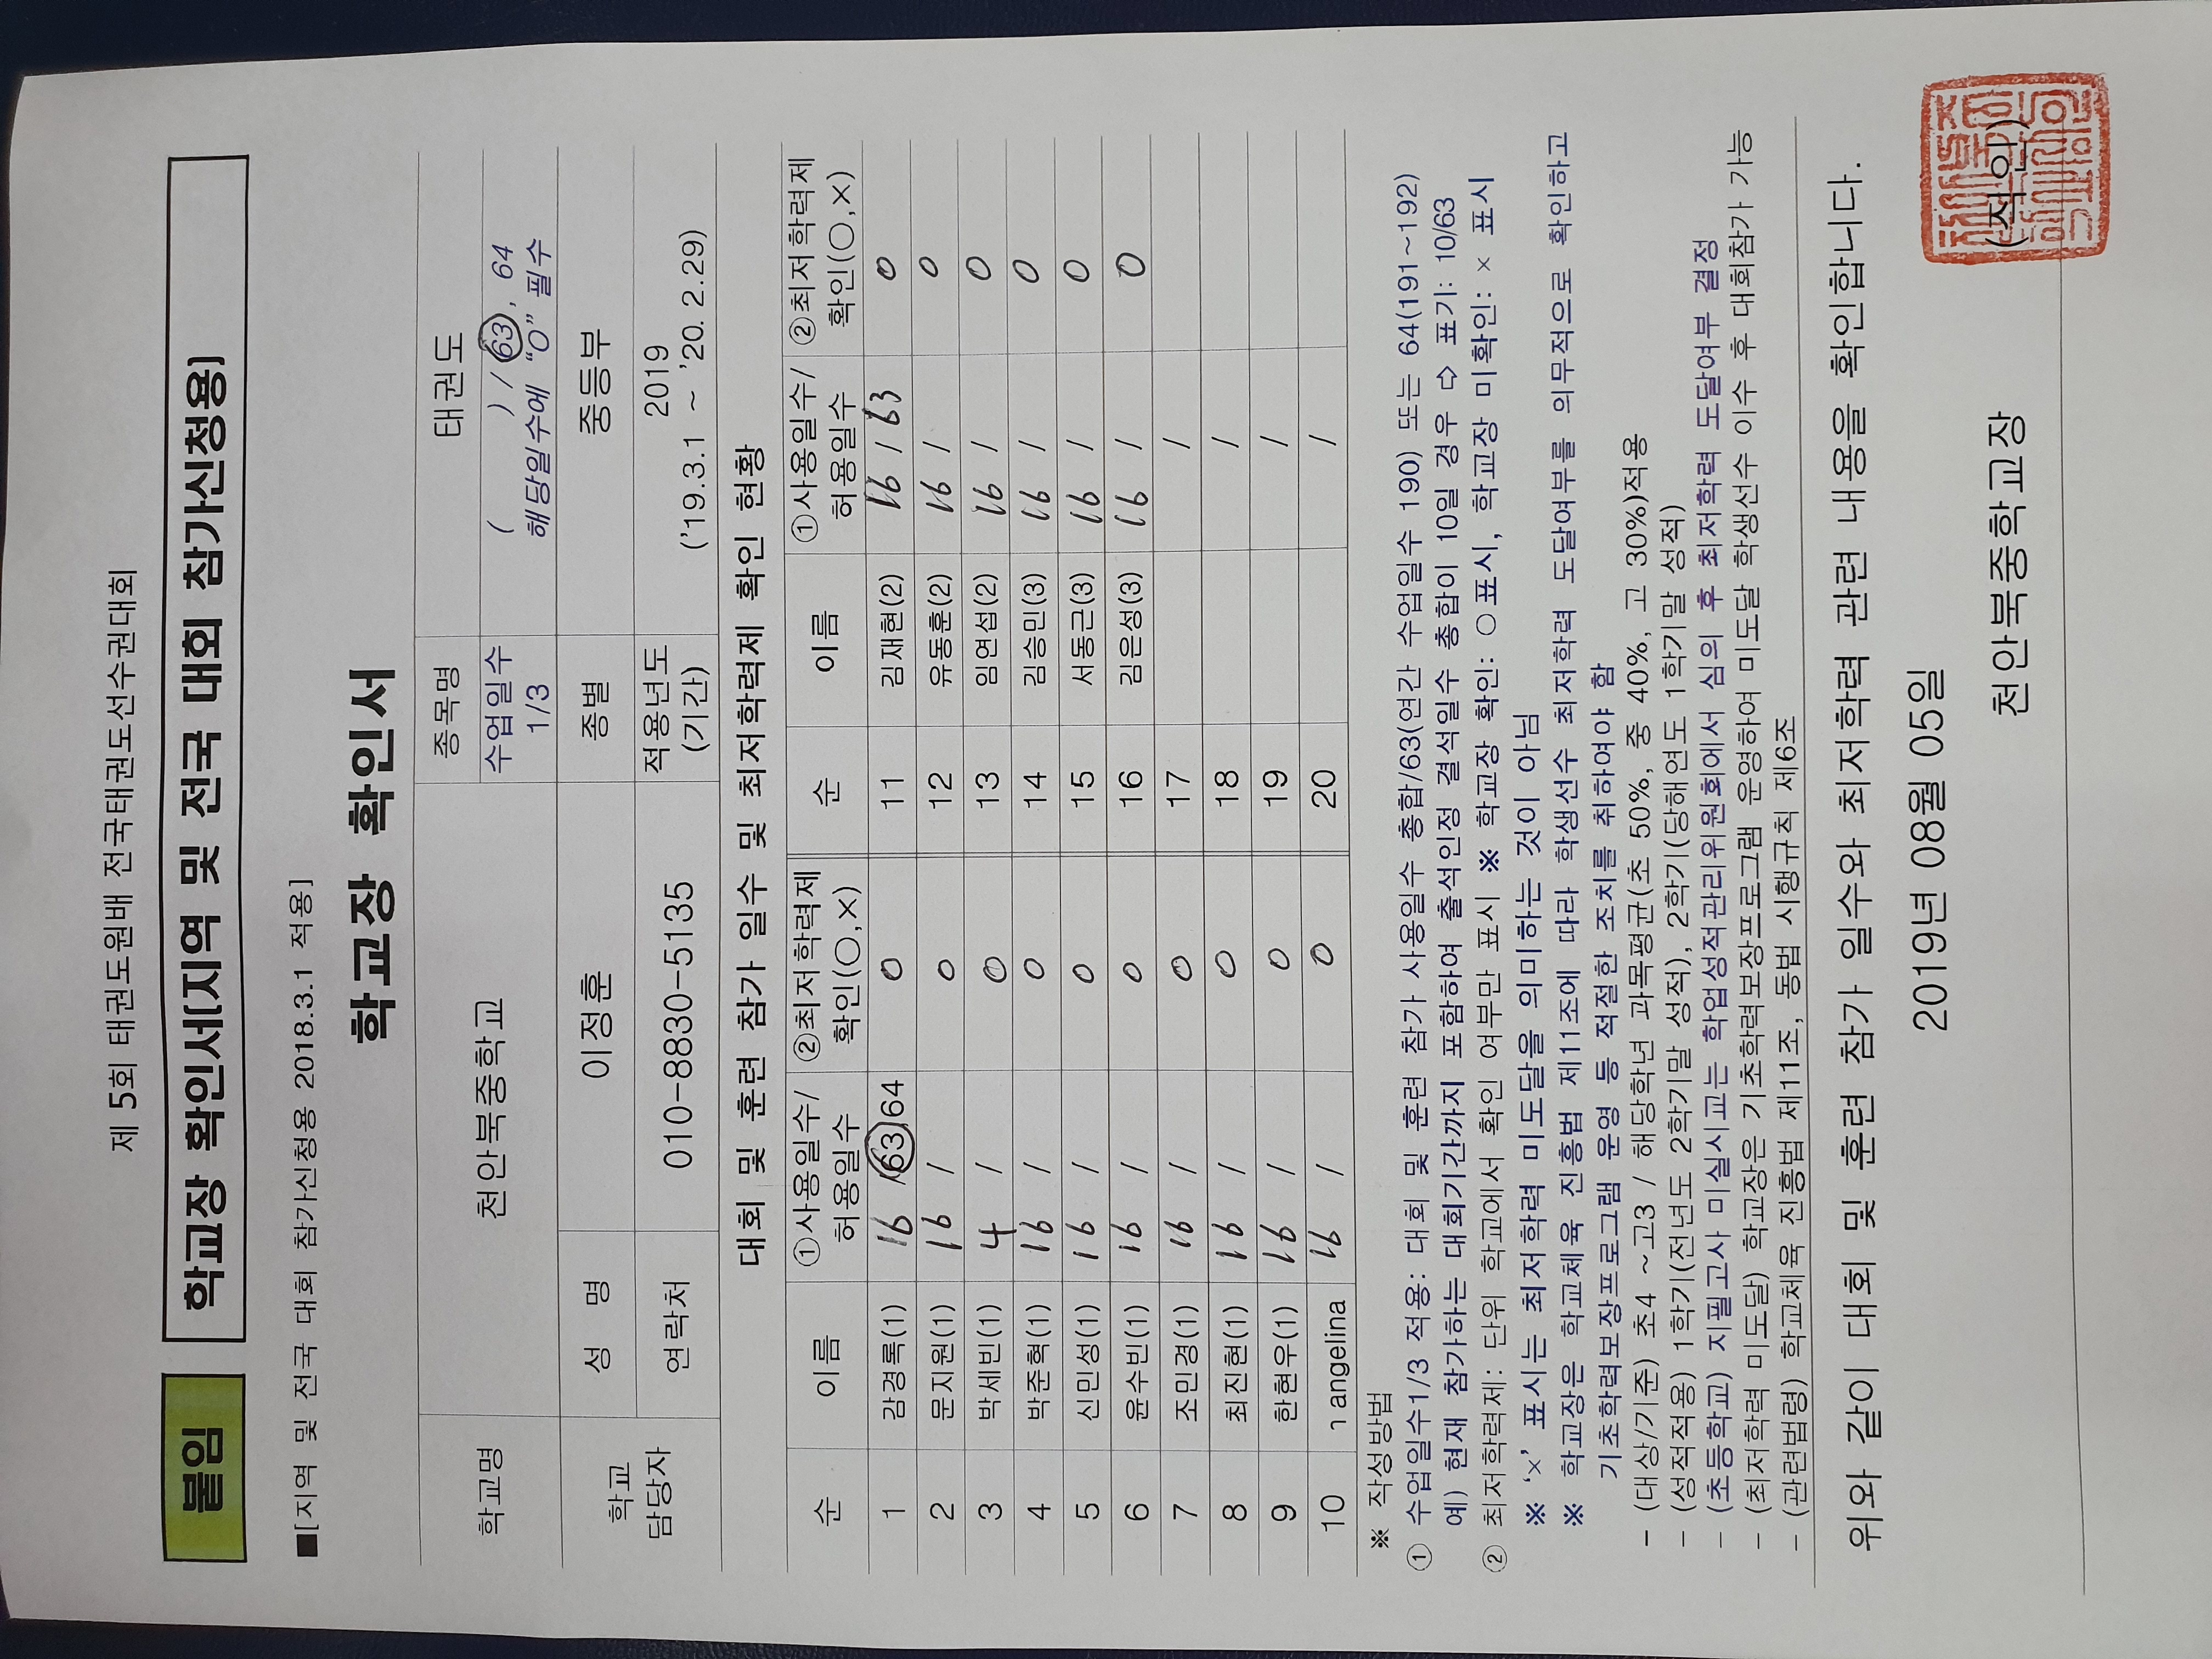 제 5회 태권도원배 전국태권도선수권대회
붙임 학교장 확인서[지역 및 전국 대회 참가신청용]
■[지역 및 전국 대회 참가신청용 2018.3.1 적용]
학교장 확인서
학교명 천안북중학교 종목명 태권도
수업일수 1/3 ( ) / 63, 64
해당일수에 "O" 필수
학교 담당자 성 명 이정훈 종별 중등부
연락처 010-8830-5135 적용년도 (기간) 2019
('19.3.1 ~ '20. 2.29)
대회 및 훈련 참가 일수 및 최저학력제 확인 현황
순 이름 ①사용일수/허용일수 ②최저학력제 확인(○,×) 순 이름 ①사용일수/허용일수 ②최저학력제 확인(○,×)
1 감경록(1) 16 /63,64 0 11 김재현(2) 16 / 63 0
2 문지원(1) 16 / 0 12 유동훈(2) 16 / 0
3 박세빈(1) 4 / 0 13 임연섭(2) 16 / 0
4 박준혁(1) 16 / 0 14 김승민(3) 16 / 0
5 신민성(1) 16 / 0 15 서동근(3) 16 / 0
6 윤수빈(1) 16 / 0 16 김은성(3) 16 / 0
7 조민경(1) 16 / 0 17 /
8 최진현(1) 16 / 0 18 /
9 한현우(1) 16 / 0 19 /
10 angelina 16 / 0 20 /
※ 작성방법
① 수업일수1/3 적용: 대회 및 훈련 참가 사용일수 총합/63(연간 수업일수 190) 또는 64(191~192)
예) 현재 참가하는 대회기간까지 포함하여 출석인정 결석일수 총합이 10일 경우 ⇨ 표기: 10/63
② 최저학력제: 단위 학교에서 확인 여부만 표시 ※ 학교장 확인: ○표시, 학교장 미확인: × 표시
※ '×' 표시는 최저학력 미도달을 의미하는 것이 아님
※ 학교장은 학교체육 진흥법 제11조에 따라 학생선수 최저학력 도달여부를 의무적으로 확인하고
기초학력보장프로그램 운영 등 적절한 조치를 취하여야 함
- (대상/기준) 초4 ~고3 / 해당학년 과목평균(초 50%, 중 40%, 고 30%)적용
- (성적적용) 1학기(전년도 2학기말 성적), 2학기(당해연도 1학기말 성적)
- (초등학교) 지필고사 미실시교는 학업성적관리위원회에서 심의 후 최저학력 도달여부 결정
- (최저학력 미도달) 학교장은 기초학력보장프로그램 운영하여 미도달 학생선수 이수 후 대회참가 가능
- (관련법령) 학교체육 진흥법 제11조, 동법 시행규칙 제6조
위와 같이 대회 및 훈련 참가 일수와 최저학력 관련 내용을 확인합니다.
2019년 08월 05일
천안북중학교장 (직인)